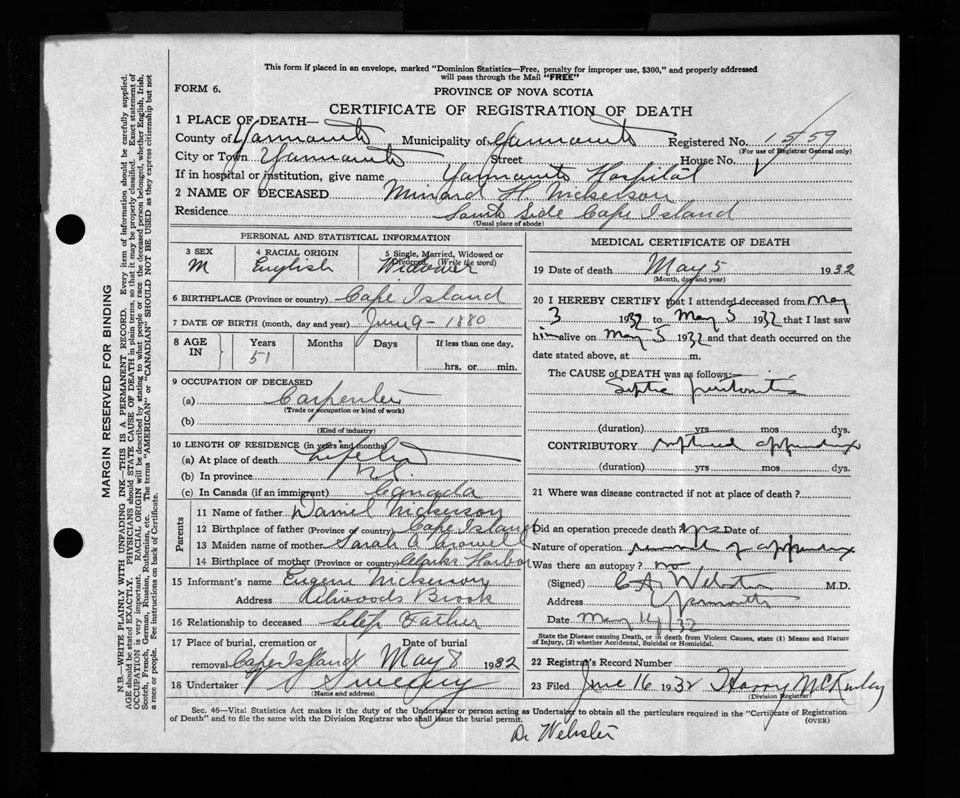 This form if placed in an envelope, marked "Dominion Statistics—Free, penalty for improper use, $300," and properly addressed
will pass through the Mail "FREE"
FORM 6.
PROVINCE OF NOVA SCOTIA
CERTIFICATE OF REGISTRATION OF DEATH
1 PLACE OF DEATH—
County of Yarmouth Municipality of Yarmouth Registered No. 1559
(For use of Registrar General only)
City or Town Yarmouth Street House No.
If in hospital or institution, give name Yarmouth Hospital
2 NAME OF DECEASED Minard H. Nickerson
Residence South Side Cape Island
(Usual place of abode)
PERSONAL AND STATISTICAL INFORMATION
3 SEX 4 RACIAL ORIGIN 5 Single, Married, Widowed or Divorced (Write the word)
M English Widower
6 BIRTHPLACE (Province or country) Cape Island
7 DATE OF BIRTH (month, day and year) June 9 - 1880
8 AGE IN Years Months Days If less than one day,
51 hrs. or min.
9 OCCUPATION OF DECEASED
(a) Carpenter
(Trade or occupation or kind of work)
(b)
(Kind of industry)
10 LENGTH OF RESIDENCE (in years and months)
(a) At place of death Lifetime
(b) In province N.S.
(c) In Canada (if an immigrant) Canada
Parents
11 Name of father Daniel Nickerson
12 Birthplace of father (Province or country) Cape Island
13 Maiden name of mother Sarah A Crowell
14 Birthplace of mother (Province or country) Clarks Harbor
15 Informant's name Eugene Nickerson
Address Atwoods Brook
16 Relationship to deceased Step Father
17 Place of burial, cremation or Date of burial
removal Cape Island May 8 1932
18 Undertaker V S Sweeny
(Name and address)
MEDICAL CERTIFICATE OF DEATH
19 Date of death May 5 1932
(Month, day and year)
20 I HEREBY CERTIFY that I attended deceased from May
3 1932 to May 5 1932 that I last saw
him alive on May 5 1932 and that death occurred on the
date stated above, at m.
The CAUSE OF DEATH was as follows:
Septic peritonitis
(duration) yrs mos dys.
CONTRIBUTORY ruptured appendix
(duration) yrs mos dys.
21 Where was disease contracted if not at place of death?
Did an operation precede death? yes Date of
Nature of operation removal of appendix
Was there an autopsy? no
(Signed) C A Webster M.D.
Address Yarmouth
Date May 14/32
State the Disease causing Death, or in death from Violent Causes, state (1) Means and Nature
of Injury, (2) whether Accidental, Suicidal or Homicidal.
22 Registrar's Record Number
23 Filed June 16 1932 Harry McKinley
(Division Registrar)
Sec. 46—Vital Statistics Act makes it the duty of the Undertaker or person acting as Undertaker to obtain all the particulars required in the "Certificate of Registration
of Death" and to file the same with the Division Registrar who shall issue the burial permit.
(OVER)
Dr Webster
MARGIN RESERVED FOR BINDING
N.B.—WRITE PLAINLY WITH UNFADING INK—THIS IS A PERMANENT RECORD. Every item of information should be carefully supplied.
AGE should be stated EXACTLY. PHYSICIANS should STATE CAUSE OF DEATH in plain terms, so that it may be properly classified. Exact statement of
OCCUPATION is very important. RACIAL ORIGIN will be described by stating to what people or race the deceased person belonged, whether English, Irish,
Scotch, French, German, Russian, Ruthenian, etc. The terms "AMERICAN" or "CANADIAN" SHOULD NOT BE USED as they express citizenship but not
a race or people. See instructions on back of Certificate.